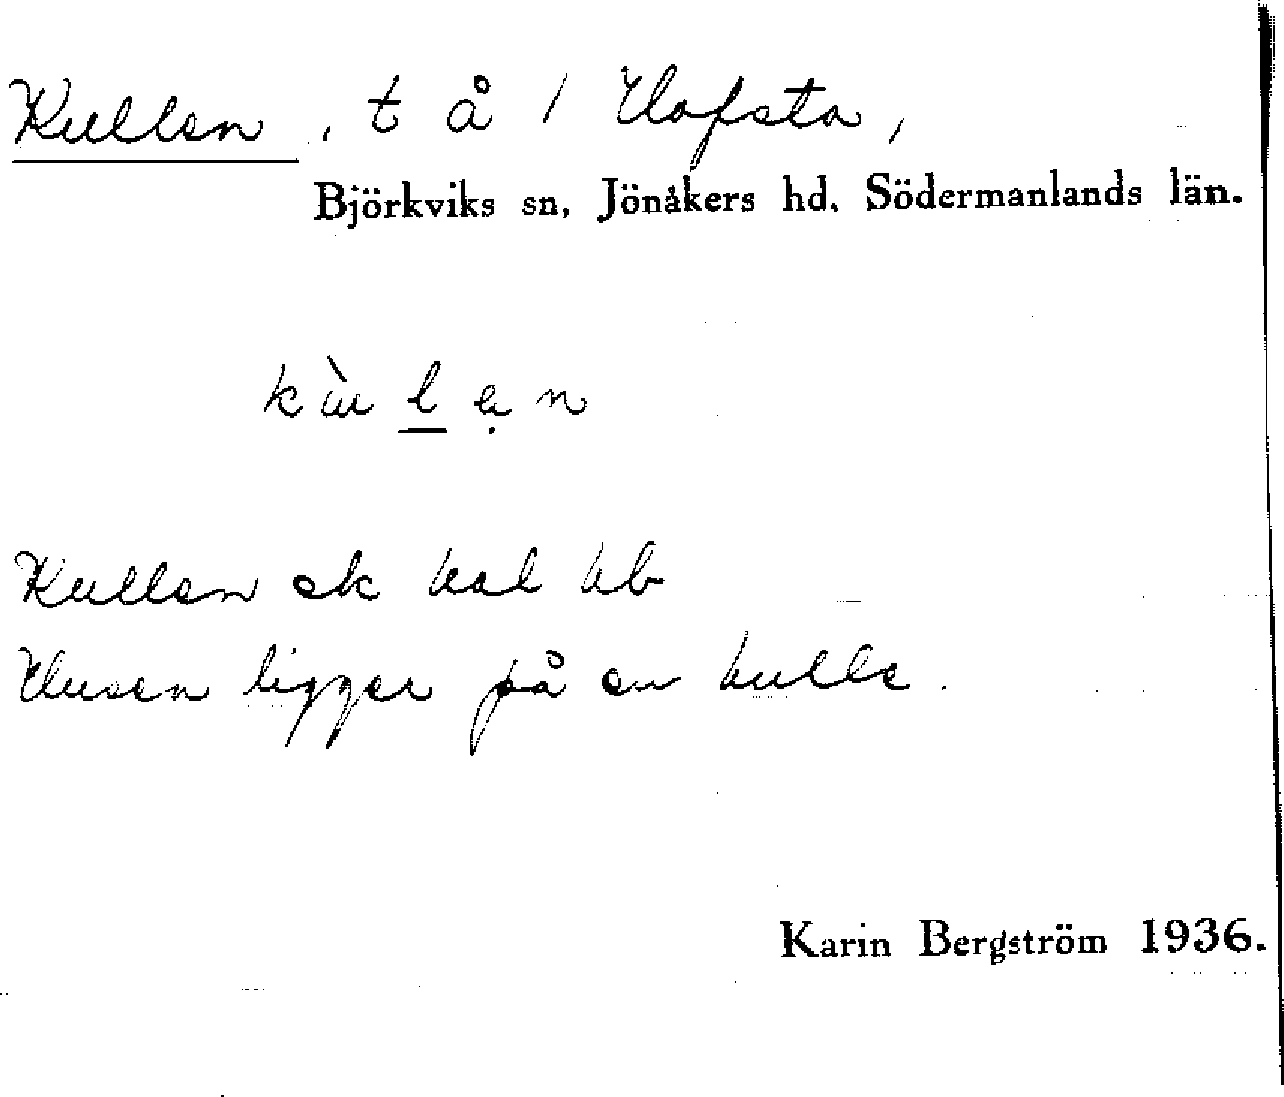 Kullen, t å 1 Hofsta,
Björkviks sn, Jönåkers hd. Södermanlands län.
kùlẹn
Kullen ek kal hb
Husen ligger på en kulle.
Karin Bergström 1936.